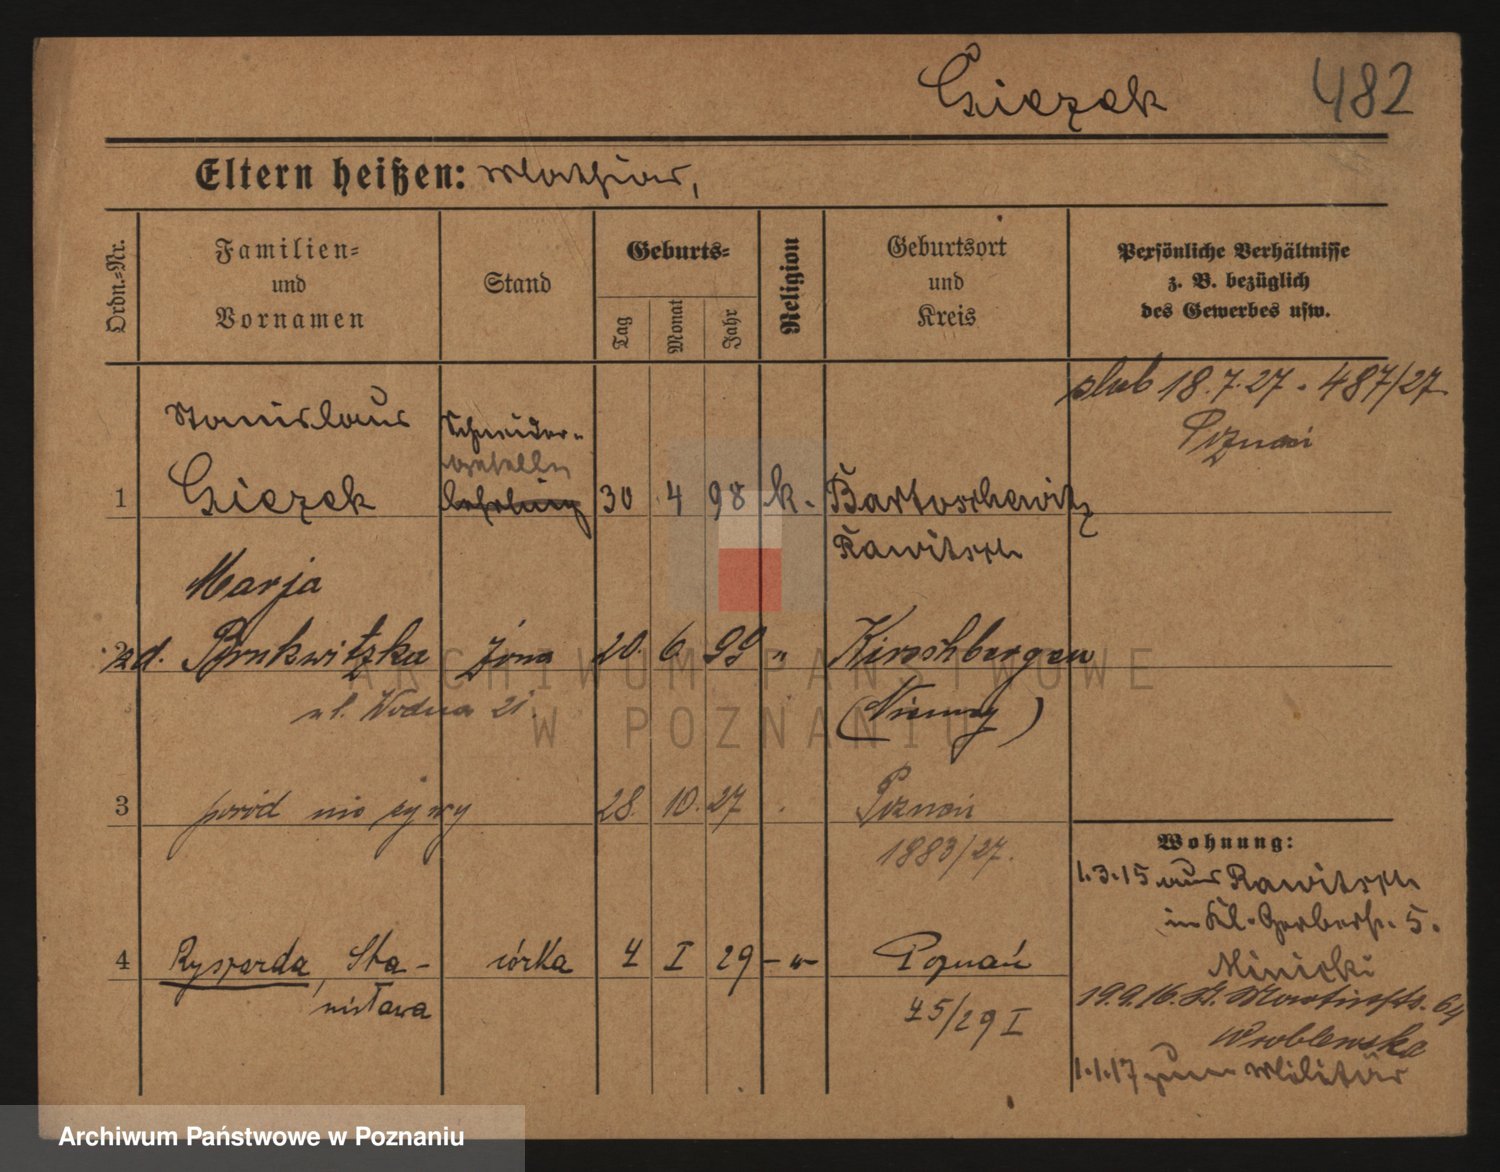 Giezek 482
Eltern heißen: Mathias,
Ordn.=Nr.
Familien=
und
Vornamen
Stand
Geburts=
Tag
Monat
Jahr
Religion
Geburtsort
und
Kreis
Persönliche Verhältnisse
z. B. bezüglich
des Gewerbes usw.
ślub 18.7.27. 487/27
Poznań
Stanislaus
Schneider-
geselle
1 Giezek Lehrling 30 4 98 k. Bartoschewitz
Rawitsch
Marja
2 zd. żona 20. 6 99 " Kirschbergen
ul. Wodna 21. (Niemcy)
3 poród nieżywy 28. 10. 27 Poznań
1883/27.
4 Ryszarda, Sta- córka 4 I 29 -"- Poznań
nisława
45/29 I
Wohnung:
1.3.15 aus Rawitsch
in Kl. Gerberstr. 5.
Minicki
19.9.16. St. Martinstr. 64
Wroblewska
1.1.17 zum Militär
ARCHIWUM PAŃSTWOWE
W POZNANIU
Archiwum Państwowe w Poznaniu